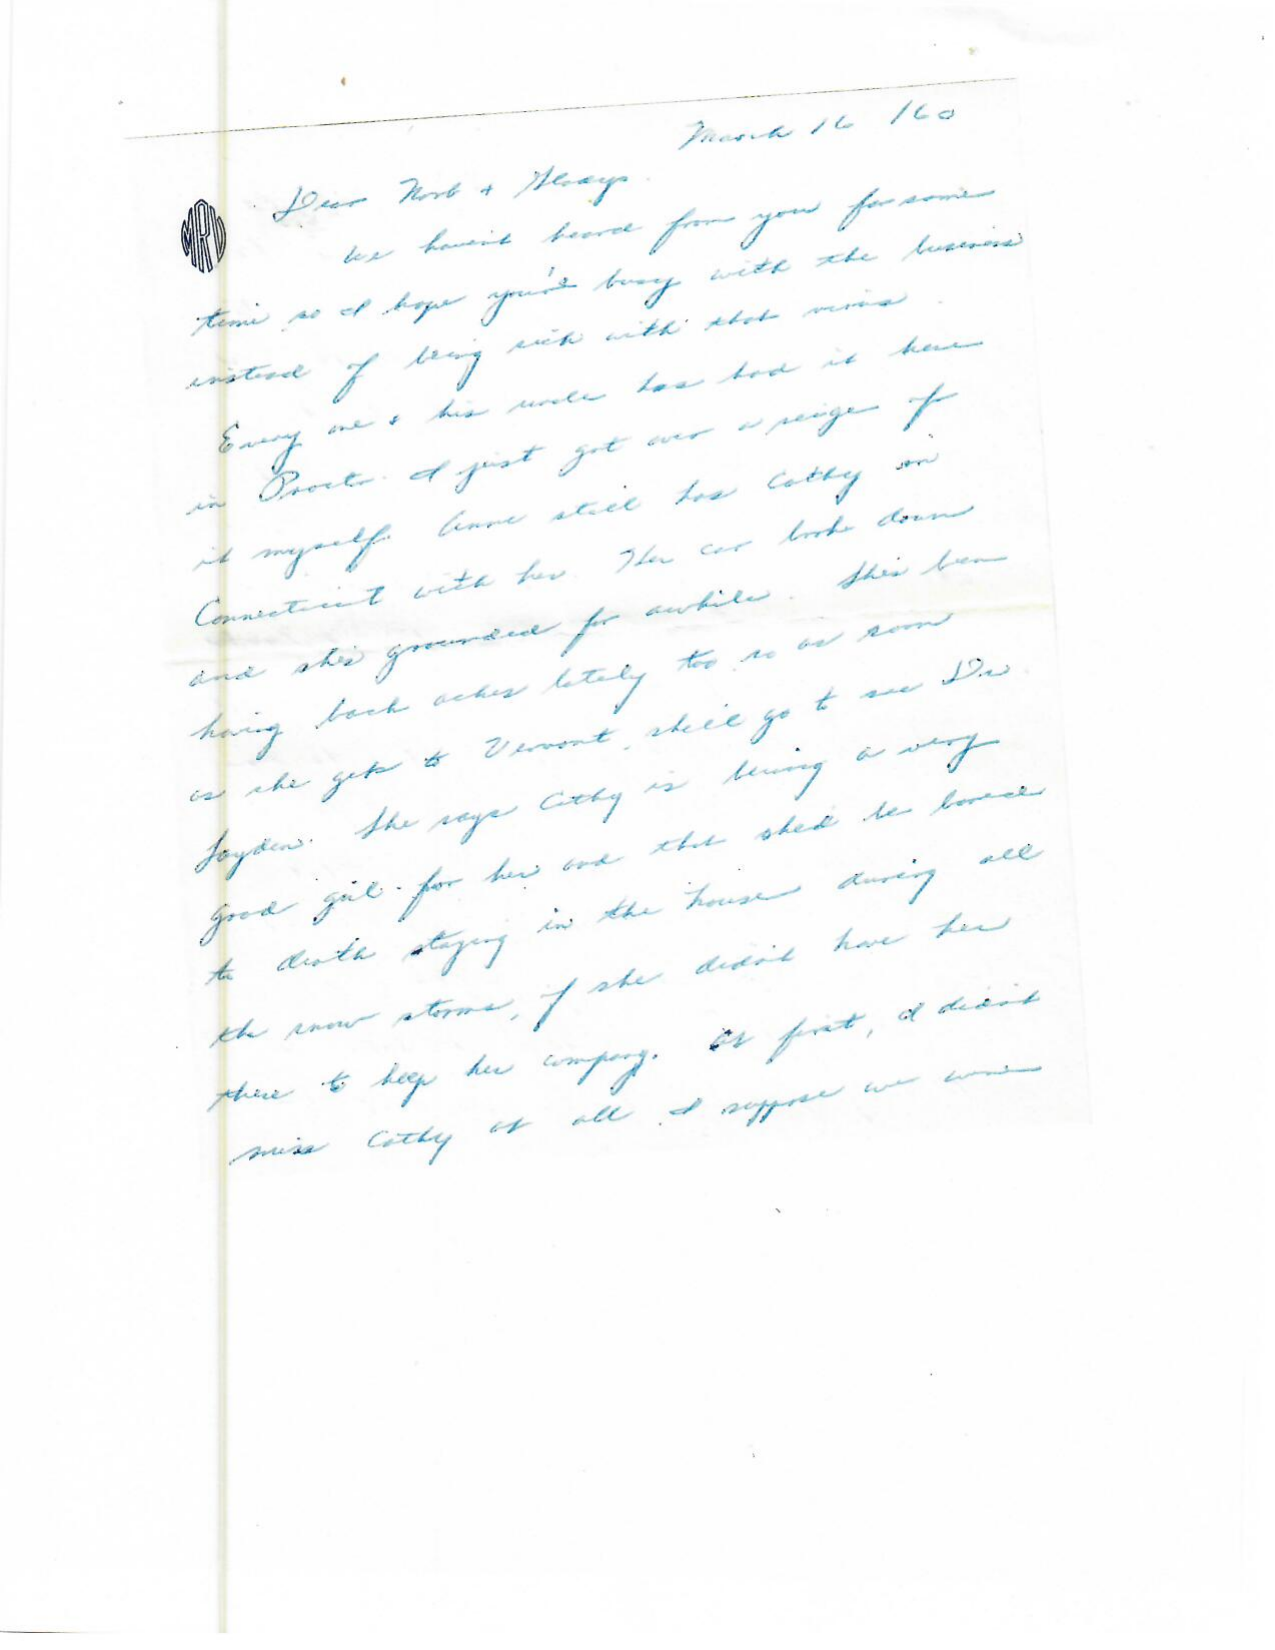 March 16 '60
MRV
Dear Norb + Gladys.
We haven't heard from you for some
time so I hope you're busy with the business
instead of being sick with that virus.
Every one & his uncle has had it here
in Proctor. I just got over a seige of
it myself. Anne still has Cathy in
Connecticut with her. Her car broke down
and she's grounded for awhile. She's been
having back aches lately too so as soon
as she gets to Vermont, she'll go to see Dr.
She says Cathy is being a very
good girl for her and that she'd be bored
to death staying in the house during all
the snow storms, if she didn't have her
there to keep her company. At first, I didn't
miss Cathy at all. I suppose we were